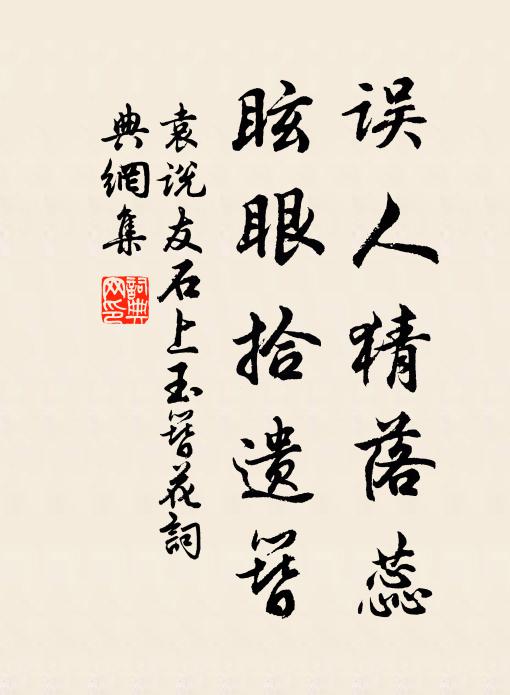 误人猜落蕊
眩眼拾遗簪
袁说友石上玉簪花詞
典網集
詞典网印